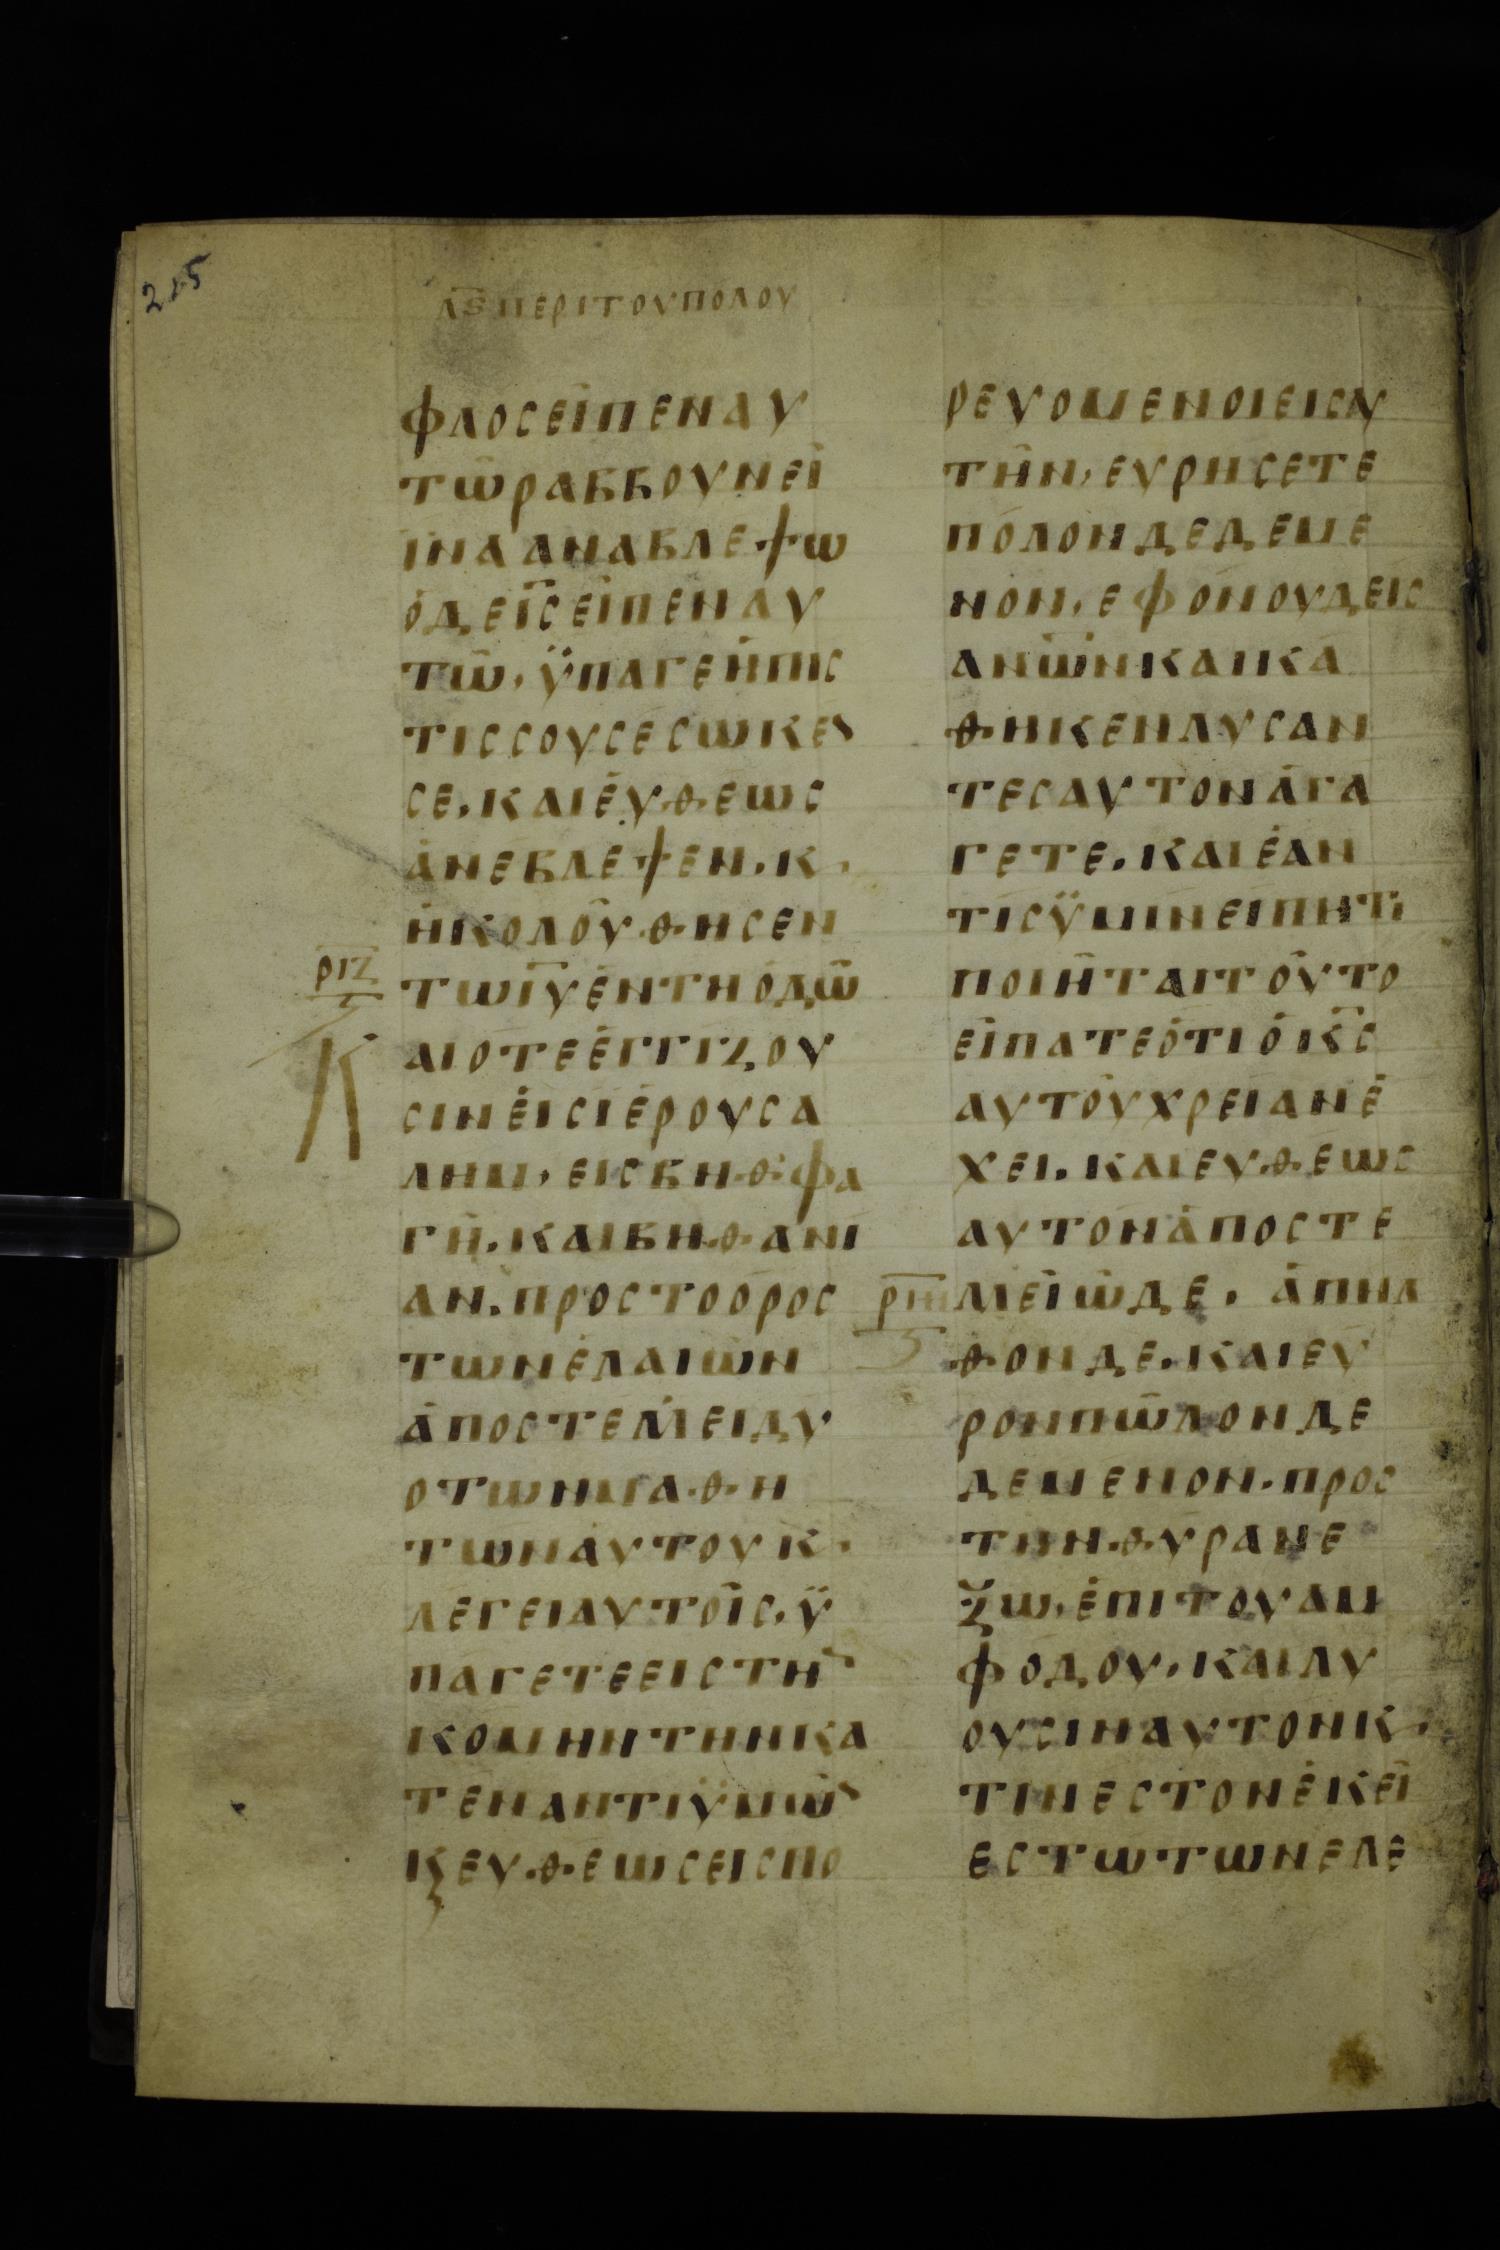 225
λϛ περι του πολου
φλοσειπεναυ
τωραββουνει
ϊνααναβλεψω
οδεισειπεναυ
τω, ϋπαγεηπις
τισσουσεσωκε
σε. καιευθεως
ανεβλεψεν. κ,
ηκολουθησεν
ριζ
τωιυεντηοδω
Κ
αιοτεεγγιζου
σινεισιερουσα
λημ, εισβηθφα
γη. καιβηθανι
αν. προστοορος
τωνελαιων
αποστελλειδυ
οτωνμαθη
τωναυτουκ,
λεγειαυτοις, ϋ
παγετεειστη
κομηντηνκα
τεναντιϋμω
κευθεωσεισπο
ρευομενοιεισαυ
την, ευρησετε
πολονδεδεμε
νον, εφονουδεις
ανωνκαικα
θηκενλυσαν
τεσαυτοναγα
γετε. καιεαν
τισϋμινειπητι
ποιηταιτουτο
ειπατεοτιοκς
αυτουχρειανε
χει. καιευθεως
αυτοναποστε
ριη
λλειωδε. απηλ
θονδε. καιευ
ρονπωλονδε
δεμενον. προς
τηνθυρανε
ξω, επιτουαμ
φοδου, καιλυ
ουσιναυτονκ,
τινεστονεκει
εστωτωνελε